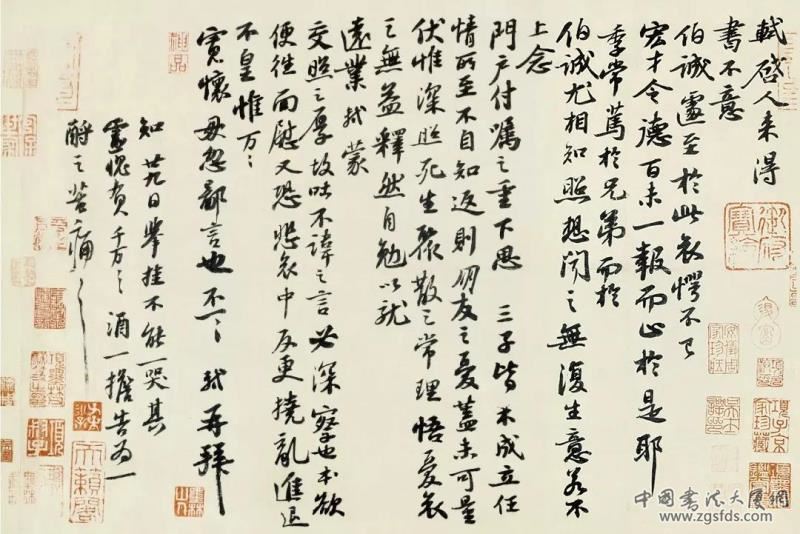 軾啓人來得
書不意
伯誠遽至於此哀愕不已
宏才令德百未一報而止於是耶
季常篤於兄弟而於
伯誠尤相知照想聞之無復生意若不
上念
門户付囑之重下思三子皆未成立任
情所至不自知返則朋友之憂蓋未可量
伏惟深照死生聚散之常理悟憂哀
之無益釋然自勉以就
遠業軾蒙
交照之厚故吐不諱之言必深察也本欲
便往面慰又恐悲哀中反更撓亂進退
不皇惟万万
寬懷毋忽鄙言也不一一軾再拜
知廿九日舉挂不能一哭其
靈愧負千万千万酒一擔告為一
酹之苦痛苦痛
中国书法大厦網
www.zgsfds.com